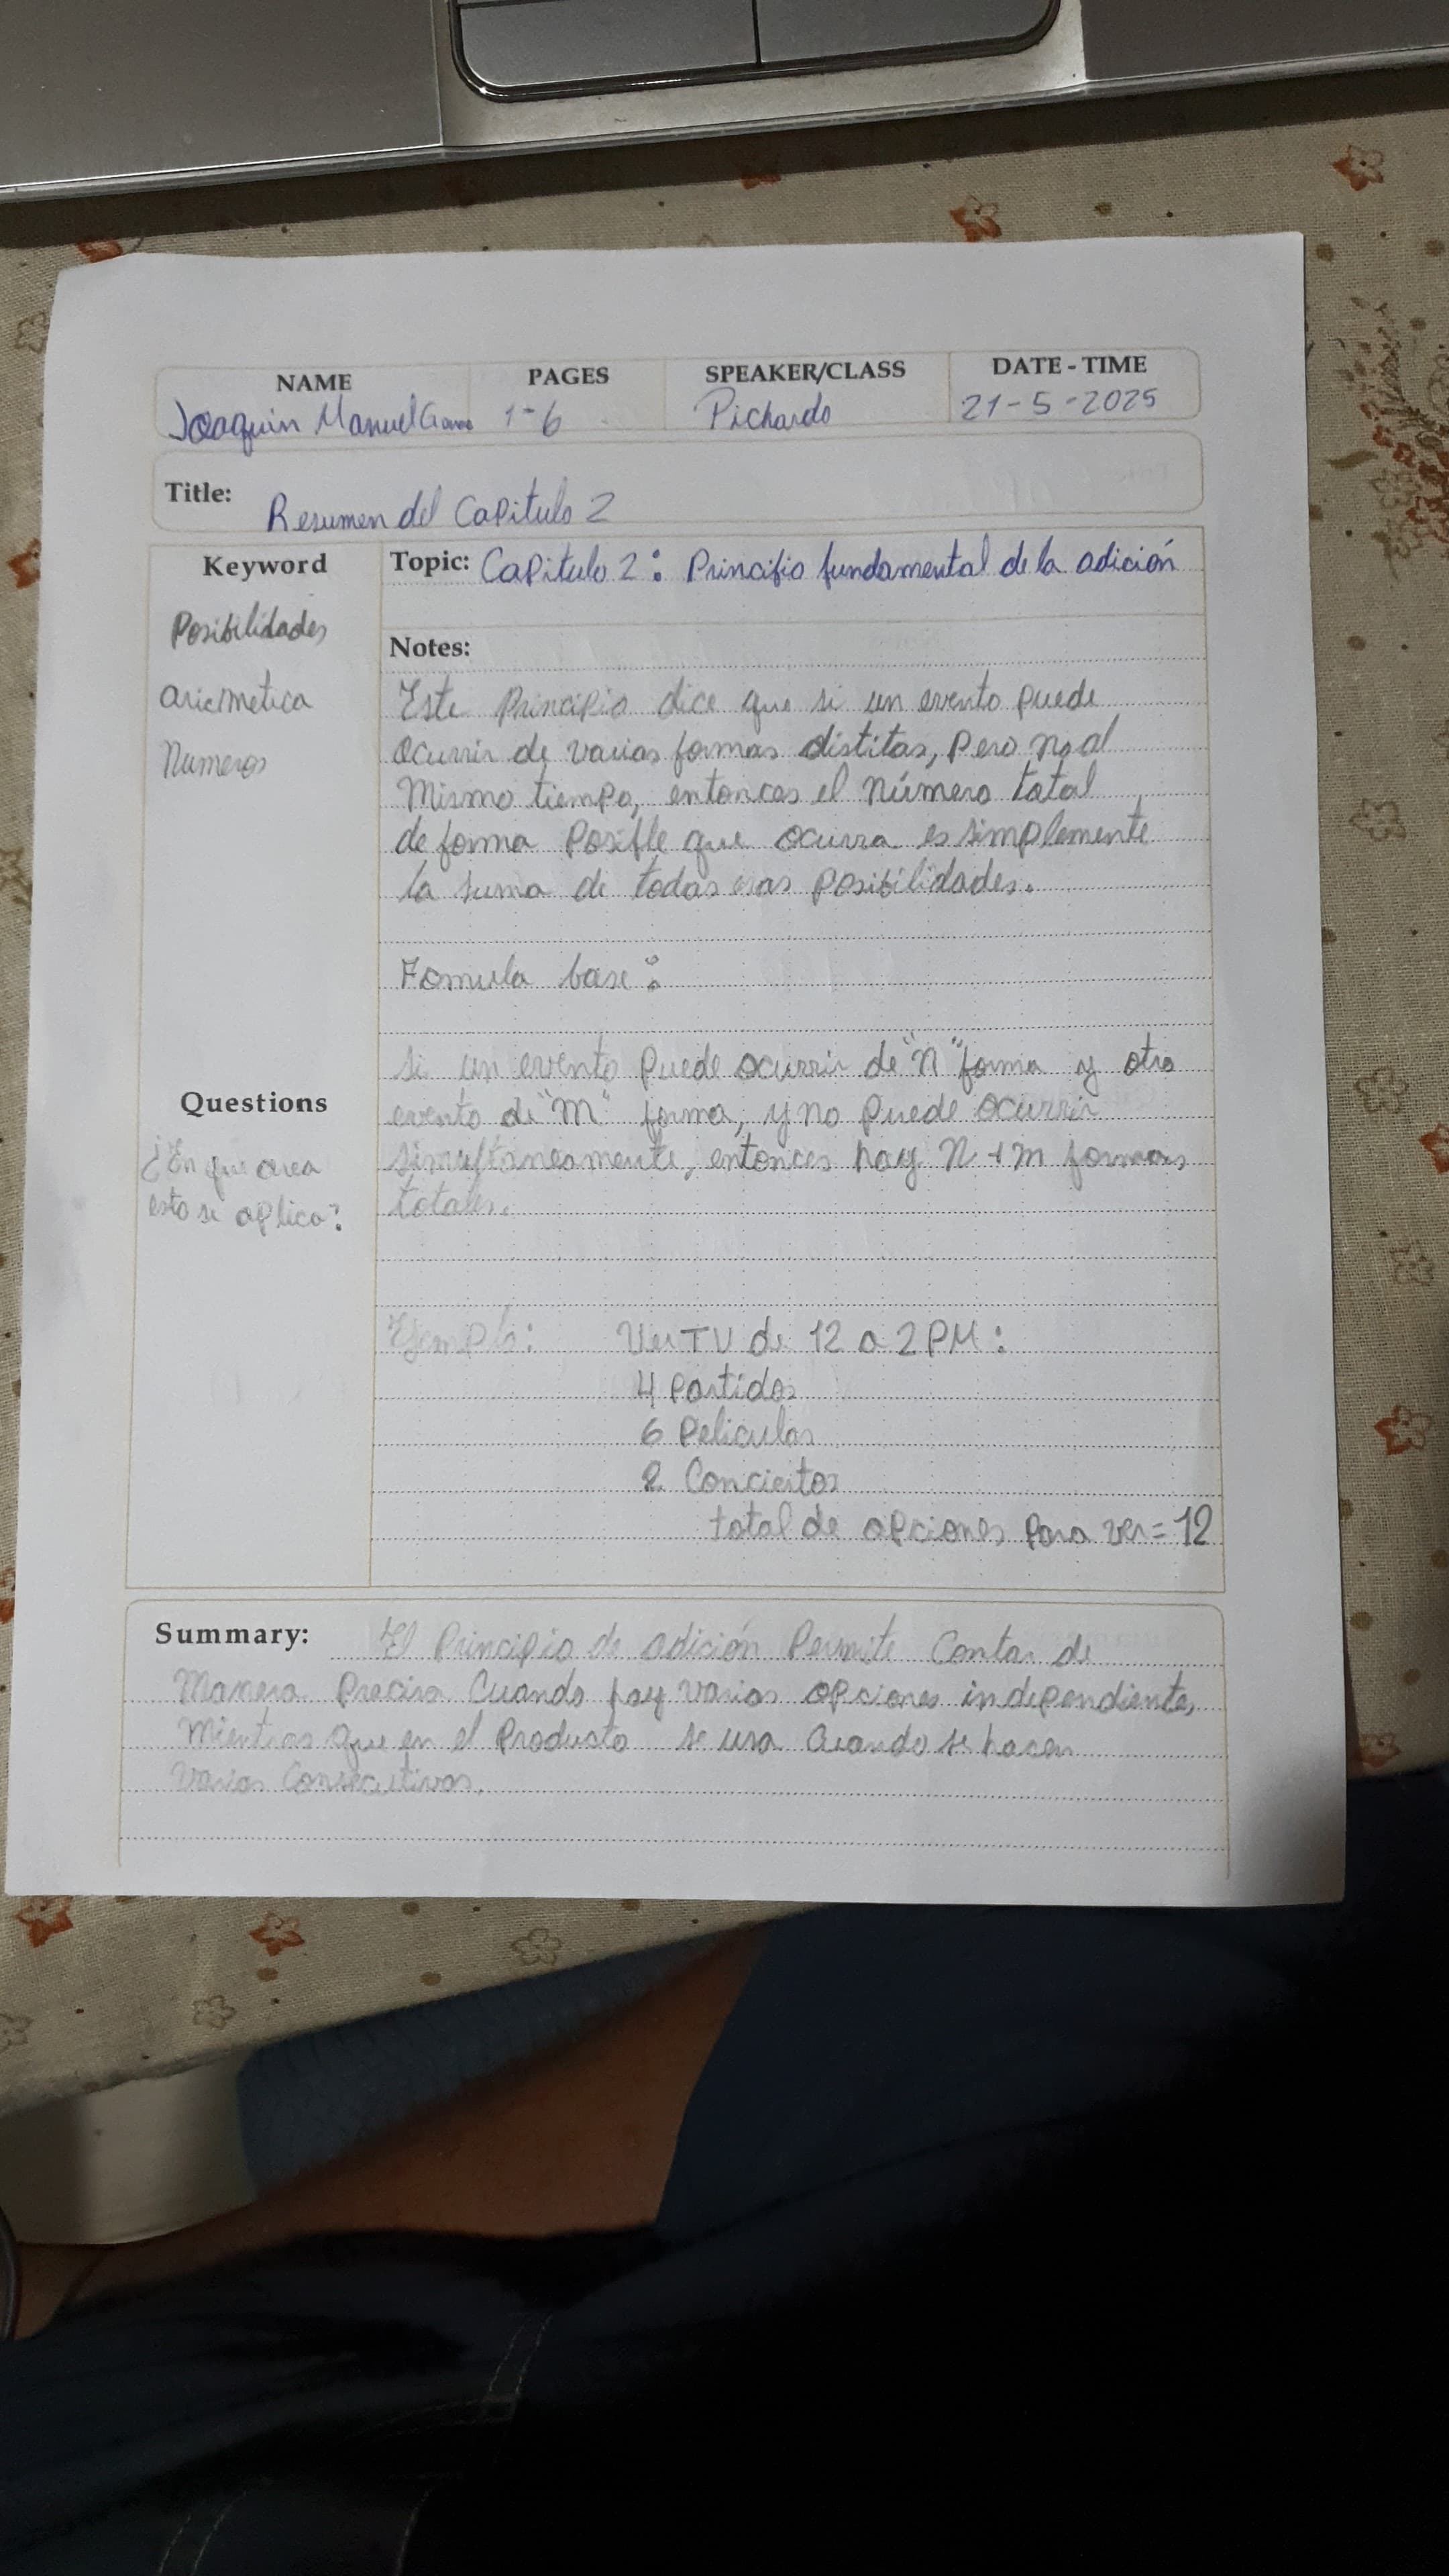 NAME PAGES SPEAKER/CLASS DATE - TIME
Joaquin Manuel 1-6 Pichardo 21-5-2025
Title: Resumen del Capitulo 2
Keyword
Posibilidades
aricmetica
Numeros
Topic: Capitulo 2: Principio fundamental de la adición
Notes:
Este Principio dice que si un evento puede
ocurrir de varias formas distitas, pero no al
Mismo tiempo, entonces el número total
de forma Posible que ocurra es simplemente
la suma de todas esas posibilidades.
Fomula base:
si un evento puede ocurrir de "n" forma y otro
evento de "m" forma, y no puede ocurrir
simultaneamente, entonces hay n+m formas
totales.
Questions
¿En que area
esto se aplica?
Ejemplo: Ver TV de 12 a 2 PM:
4 Partidos
6 Peliculas
2 Conciertos
total de opciones para ver = 12
Summary: El Principio de adición Permite Contar de
Manera Precisa Cuando hay varias opciones independiente,
Mientras que en el Producto se usa Cuando se hacen
varias Consecutivas.